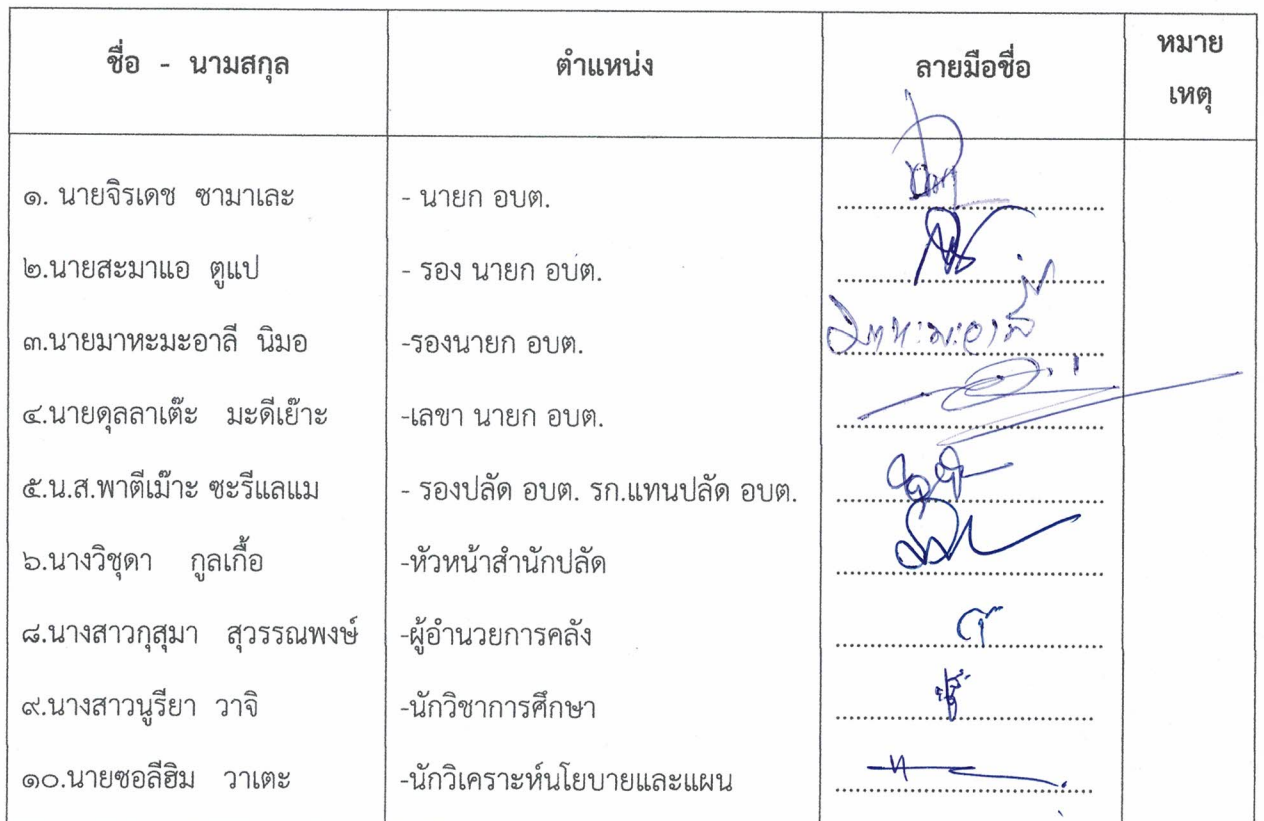 ชื่อ - นามสกุล ตำแหน่ง ลายมือชื่อ หมายเหตุ
๑. นายจิรเดช ซามาเละ - นายก อบต.
๒.นายสะมาแอ ตูแป - รอง นายก อบต.
๓.นายมาหะมะอาลี นิมอ -รองนายก อบต. มาหะมะอาลี
๔.นายดุลลาเต๊ะ มะดีเย๊าะ -เลขา นายก อบต.
๕.น.ส.พาตีเม๊าะ ซะรีแลแม - รองปลัด อบต. รก.แทนปลัด อบต.
๖.นางวิชุดา กูลเกื้อ -หัวหน้าสำนักปลัด
๘.นางสาวกุสุมา สุวรรณพงษ์ -ผู้อำนวยการคลัง
๙.นางสาวนูรียา วาจิ -นักวิชาการศึกษา
๑๐.นายซอลีฮิม วาเตะ -นักวิเคราะห์นโยบายและแผน